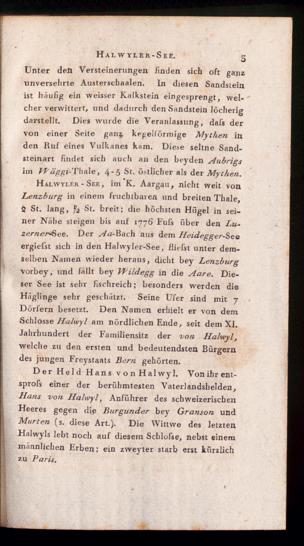 HALWYLER-SEE. 5
Unter den Versteinerungen finden sich oft ganz
unversehrte Austerschaalen. In diesen Sandstein
ist häufig ein weisser Kalkstein eingesprengt, wel-
cher verwittert, und dadurch den Sandstein löcherig
darstellt. Dies wurde die Veranlassung, daſs der
von einer Seite ganz kegelförmige Mythen in
den Ruf eines Vulkanes kam. Diese seltne Sand-
steinart findet sich auch an den beyden Aubrigs
im Wäggi-Thale, 4-5 St. östlicher als der Mythen.
HALWYLER-SEE, im K. Aargau, nicht weit von
Lenzburg in einem fruchtbaren und breiten Thale,
2 St. lang, ½ St. breit; die höchsten Hügel in sei-
ner Nähe steigen bis auf 1776 Fuſs über den Lu-
zerner-See. Der Aa-Bach aus dem Heidegger-See
ergieſst sich in den Halwyler-See, flieſst unter dem-
selben Namen wieder heraus, dicht bey Lenzburg
vorbey, und fällt bey Wildegg in die Aare. Die-
ser See ist sehr fischreich; besonders werden die
Häglinge sehr geschätzt. Seine Ufer sind mit 7
Dörfern besetzt. Den Namen erhielt er von dem
Schlosse Halwyl am nördlichen Ende, seit dem XI.
Jahrhundert der Familiensitz der von Halwyl,
welche zu den ersten und bedeutendsten Bürgern
des jungen Freystaats Bern gehörten.
Der Held Hans von Halwyl. Von ihr ent-
sproſs einer der berühmtesten Vaterlandshelden,
Hans von Halwyl, Anführer des schweizerischen
Heeres gegen die Burgunder bey Granson und
Murten (s. diese Art.). Die Wittwe des letzten
Halwyls lebt noch auf diesem Schloſse, nebst einem
männlichen Erben; ein zweyter starb erst kürzlich
zu Paris.